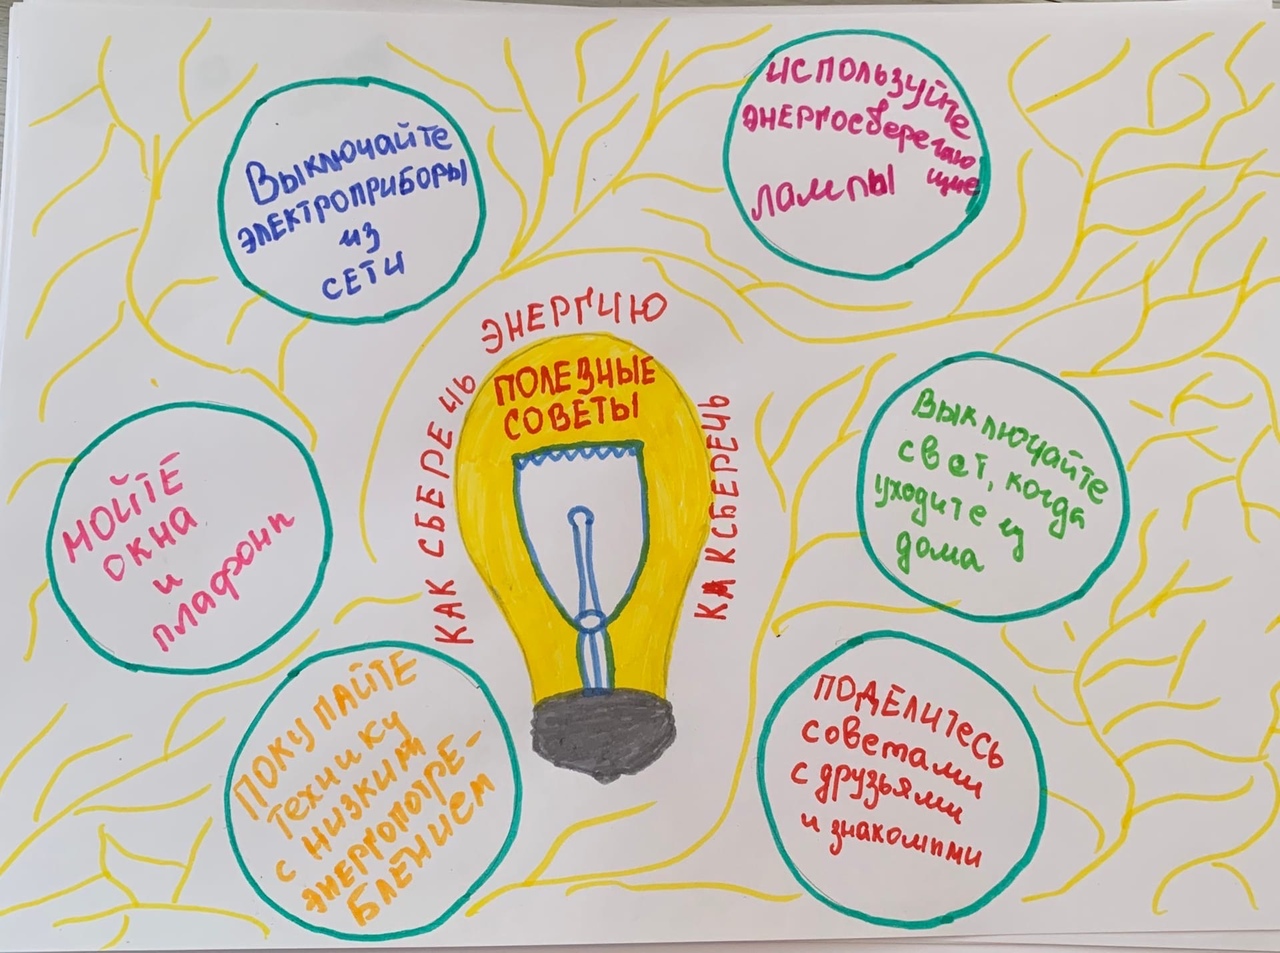 Выключайте
электроприборы
из
сети
используйте
энергосберегаю
щие
лампы
КАК СБЕРЕЧЬ
ЭНЕРГИЮ
КАК СБЕРЕЧЬ
ПОЛЕЗНЫЕ
СОВЕТЫ
МОЙТЕ
ОКНА
и
плафоны
Выключайте
свет, когда
уходите из
дома
ПОКУПАЙТЕ
технику
с низким
энергопотре-
блением
ПОДЕЛИТЕСЬ
советами
с друзьями
и знакомыми